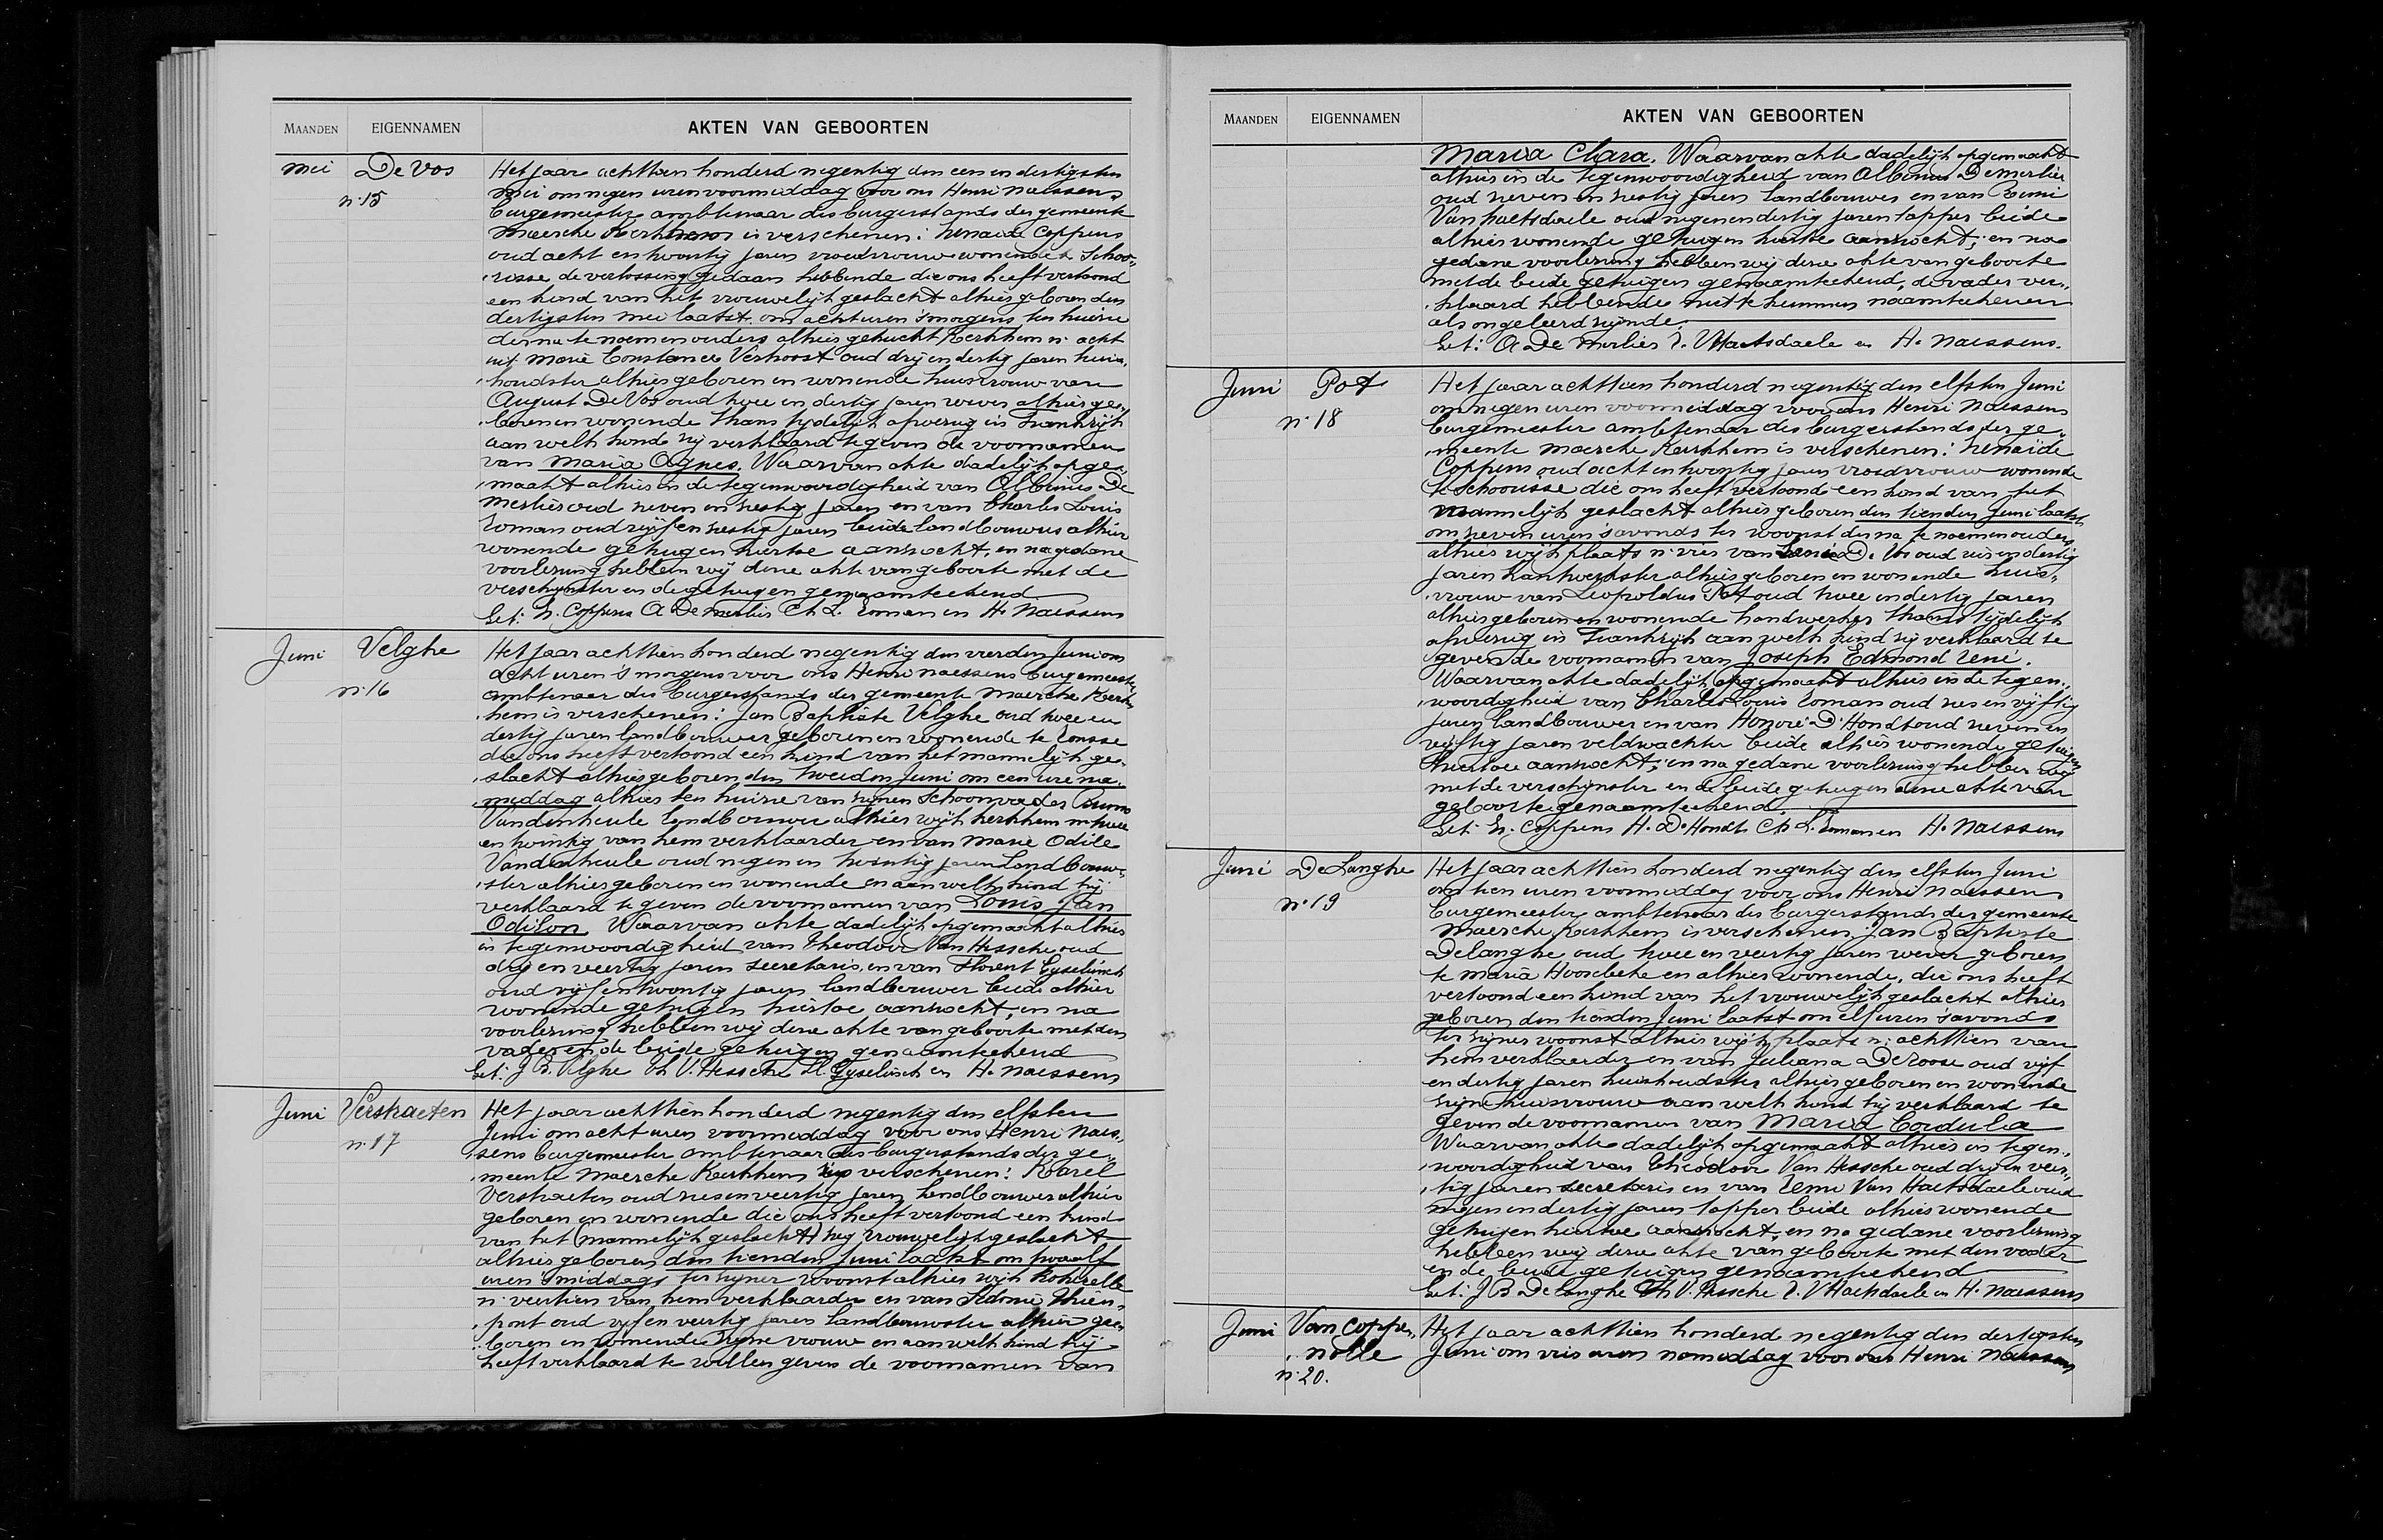 MAANDEN EIGENNAMEN AKTEN VAN GEBOORTEN
mei De Vos Het jaar achttien honderd negentig den een en dertigsten
n. 15 Mei om negen uren voormiddag voor ons Henri Naessens
burgemeester ambtenaar des burgerstands der gemeente
Maercke Kerkhem is verschenen: Zenaïde Coppens
oud acht en twintig jaren vroedvrouw wonende te Schoo„
„risse de verlossing gedaan hebbende die ons heeft vertoond
een kind van het vrouwelijk geslacht alhier geboren den
dertigsten mei laatst om acht uren s'morgens ten huize
derna te noemen ouders alhier gehucht Kerkhem n. acht
uit Marie Constance Verhoost oud drij en dertig jaren huis„
„houdster alhier geboren en wonende huisvrouw van
August De Vos oud twee en dertig jaren wever alhier ge„
„boren en wonende thans tijdelijk afwezig in Frankrijk
aan welk kind zij verklaard te geven de voornamen
van Maria Agnes. Waarvan akte dadelijk opge„
„maakt alhier in de tegenwoordigheid van Albinus De
Merlier oud zeven en zestig jaren en van Charles Louis
Toman oud vijf en zestig jaren beide landbouwers alhier
wonende getuigen hiertoe aanzocht, en na gedane
voorlezing hebben wij deze akte van geboorte met de
verschijnster en de getuigen genaamteekend
Get: Z. Coppens A De Merlier Ch L. Toman en H. Naessens
Juni Velghe Het jaar achttien honderd negentig den vierden Juni om
n. 16 acht uren s'morgens voor ons Henri Naessens burgemeester
ambtenaar des burgerstands der gemeente Maercke Kerk„
„hem is verschenen: Jan Baptiste Velghe oud twee en
dertig jaren landbouwer geboren en wonende te Ronsse
die ons heeft vertoond een kind van het mannelijk ge„
„slacht alhier geboren den tweeden Juni om een ure na„
„middag alhier ten huize van zijnen schoonvader Bruno
Vandenheule landbouwer alhier wijk Kerkhem n. twee
en twintig van hem verklaarder en van Marie Odile
Vandenheule oud negen en twintig jaren Landbouw„
„ster alhier geboren en wonende en aan welk kind hij
verklaard te geven de voornamen van Louis Jan
Odilon. Waarvan akte dadelijk opgemaakt alhier
in tegenwoordigheid van Theodoor Van Hessche oud
drij en veertig jaren secretaris en van Florent Gyselinck
oud vijf en twintig jaren landbouwer beide alhier
wonende getuigen hiertoe aanzocht, en na
voorlezing hebben wij deze akte van geboorte met den
vader en de beide getuigen genaamteekend
Get: J B. Velghe Th V. Hessche Fl. Gyselinck en H. Naessens
Juni Verstraeten Het jaar achttien honderd negentig den elfsten
n. 17 Juni om acht uren voormiddag voor ons Henri Naes„
„sens burgemeester ambtenaar des burgerstands der ge„
„meente Maercke Kerkhem is verschenen: Karel
Verstraeten oud zes en veertig jaren Landbouwer alhier
geboren en wonende die ons heeft vertoond een kind
van het (mannelijk geslacht) zeg vrouwelijk geslacht
alhier geboren den tienden Juni laatst om twaalf
uren s'middags ter zijner woonst alhier wijk Rokerelle
n. veertien van hem verklaarder en van Sidonie Thien„
„pont oud vijf en veertig jaren Landbouwster alhier ge„
„boren en wonende zijne vrouw en aan welk kind hij
heeft verklaard te willen geven de voornamen van
MAANDEN EIGENNAMEN AKTEN VAN GEBOORTEN
Maria Clara. Waarvan akte dadelijk opgemaakt
alhier in de tegenwoordigheid van Albinus Demerlier
oud zeven en zestig jaren landbouwer en van Remi
Van Haetsdaele oud negen en dertig jaren tapper beide
alhier wonende getuigen hiertoe aanzocht; en na
gedane voorlezing hebben wij deze akte van geboorte
met de beide getuigen genaamteekend, de vader ver„
„klaard hebbende niet te kunnen naamteekenen
als ongeleerd zijnde.
Get: A De Merlier R. VHaetsdaele en H. Naessens.
Juni Pot Het jaar achttien honderd negentig den elfsten Juni
n. 18 om negen uren voormiddag voor ons Henri Naessens
burgemeester ambtenaar des burgerstands der ge„
„meente Maercke Kerkhem is verschenen: Zenaïde
Coppens oud acht en twintig jaren vroedvrouw wonende
te Schoorisse die ons heeft vertoond een kind van het
mannelijk geslacht alhier geboren den tienden Juni laatst
om zeven uren s'avonds ter woonst derna te noemen ouders
alhier wijk plaats n. vier van De Vos oud zes en dertig
jaren kantwerkster alhier geboren en wonende huis„
„vrouw van Leopoldus Pot oud twee en dertig jaren
alhier geboren en wonende handwerker thans tijdelijk
afwezig in Frankrijk aan welk kind zij verklaard te
geven de voornamen van Joseph Edmond René.
Waarvan akte dadelijk opgemaakt alhier in de tegen„
„woordigheid van Charles Louis Toman oud zes en vijftig
jaren landbouwer en van Honoré D'Hondt oud zeven en
vijftig jaren veldwachter beide alhier wonende getuigen
hiertoe aanzocht, en na gedane voorlezing hebben wij
met de verschijnster en de beide getuigen deze akte van
geboorte genaamteekend.
Get: Z. Coppens H. D'Hondt Ch L. Toman en H. Naessens
Juni De Langhe Het jaar achttien honderd negentig den elfsten Juni
n. 19 om tien uren voormiddag voor ons Henri Naessens
burgemeester ambtenaar des burgerstands der gemeente
Maercke Kerkhem is verschenen Jan Baptiste
Delanghe oud twee en veertig jaren wever geboren
te Maria Hoorebeke en alhier wonende, die ons heeft
vertoond een kind van het vrouwelijk geslacht alhier
geboren den tienden Juni laatst om elf uren s'avonds
ter zijner woonst alhier wijk plaats n. achttien van
hem verklaarder en van Juliana De Roose oud vijf
en dertig jaren huishoudster alhier geboren en wonende
zijne huisvrouw aan welk kind hij verklaard te
geven de voornamen van Maria Cordula
Waarvan akte dadelijk opgemaakt alhier in tegen„
„woordigheid van Theodoor Van Hessche oud drij en veer„
„tig jaren secretaris en van Remi Van Haetsdaele oud
negen en dertig jaren tapper beide alhier wonende
getuigen hiertoe aanzocht, en na gedane voorlezing
hebben wij deze akte van geboorte met den vader
en de beide getuigen genaamteekend
Get: J B De Langhe Th V. Hessche R. VHaetsdaele en H. Naessens
Juni Van Coppe„ Het jaar achttien honderd negentig den dertigsten
„nolle Juni om vier uren namiddag voor ons Henri Naessens
n. 20.